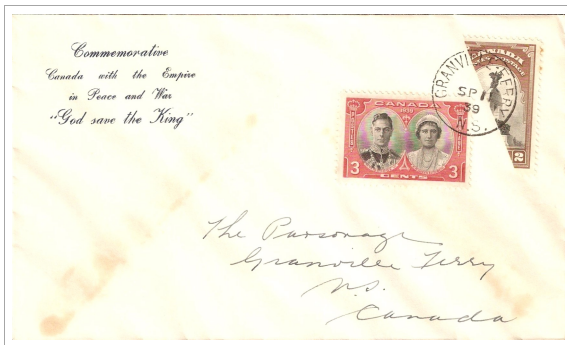 Commemorative
Canada with the Empire
in Peace and War
"God save the King"
CANADA
POSTAGE
2
GRANVILLE FERRY
SP 11
39
N.S.
CANADA
1939
3 CENTS 3
The Parsonage
Granville Ferry
N.S.
Canada